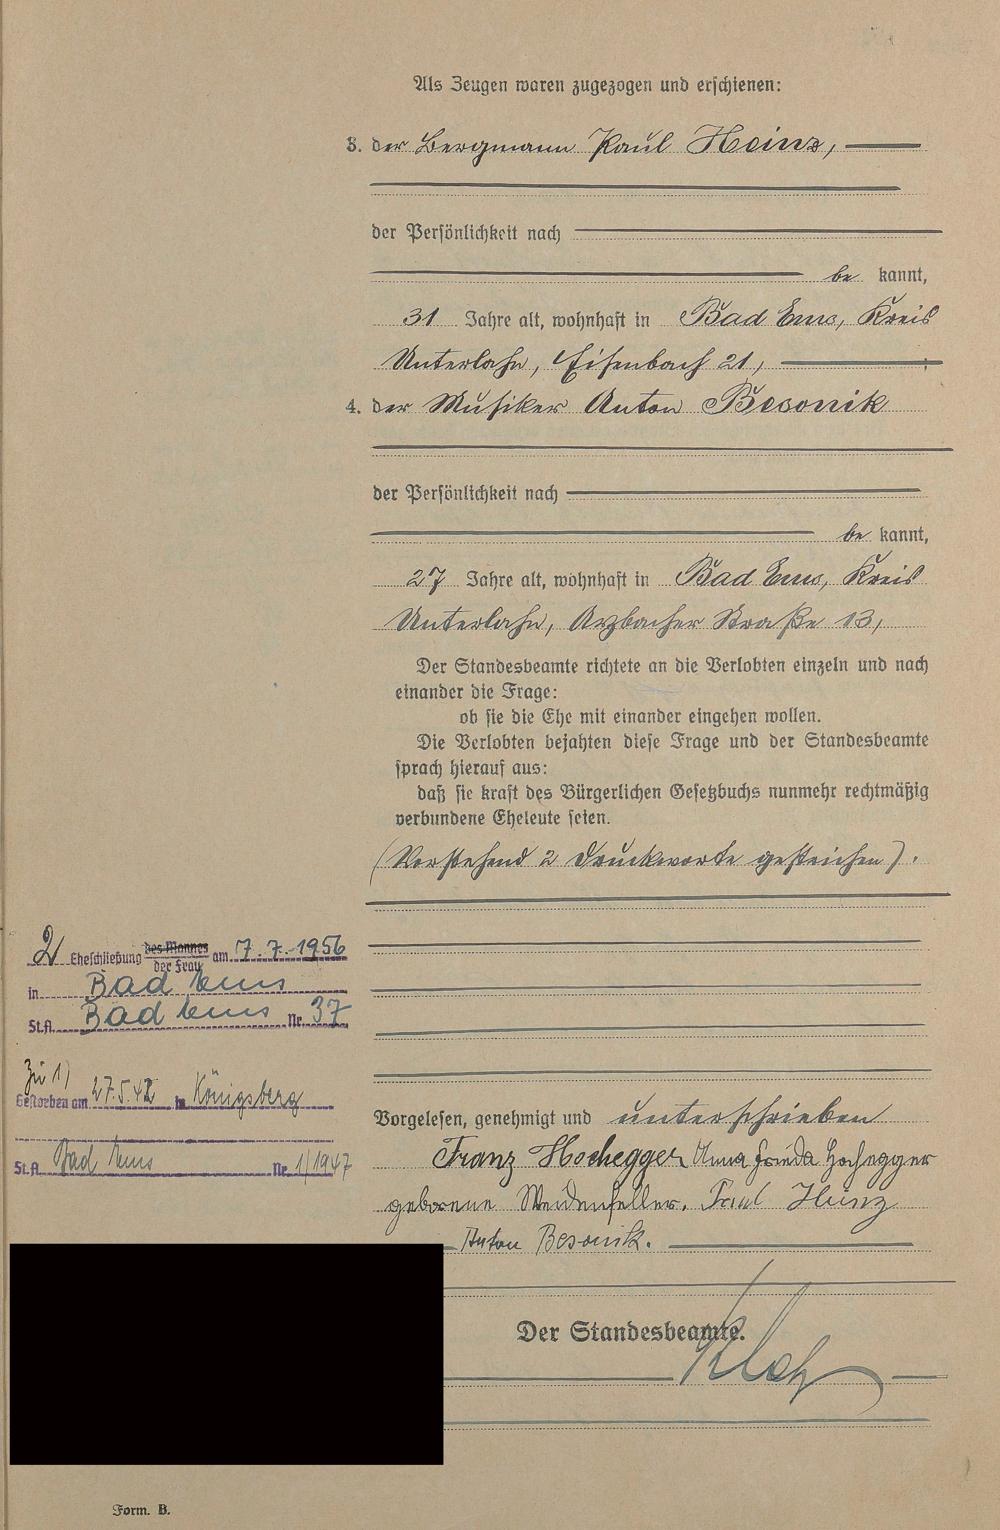 Als Zeugen waren zugezogen und erschienen:
3. der Bergmann Paul Heinz,
der Persönlichkeit nach
be kannt,
31 Jahre alt, wohnhaft in Bad Ems, Kreis
Unterlahn, Eisenbach 21,
4. der Musiker Anton Besonik
der Persönlichkeit nach
be kannt,
27 Jahre alt, wohnhaft in Bad Ems, Kreis
Unterlahn, Arzbacher Straße 13,
Der Standesbeamte richtete an die Verlobten einzeln und nach
einander die Frage:
ob sie die Ehe mit einander eingehen wollen.
Die Verlobten bejahten diese Frage und der Standesbeamte
sprach hierauf aus:
daß sie kraft des Bürgerlichen Gesetzbuchs nunmehr rechtmäßig
verbundene Eheleute seien.
(Vorstehend 2 Druckworte gestrichen).
2 Eheschließung des Mannes der Frau am 7.7.1956
in Bad Ems
St.A. Bad Ems Nr. 37
Zu 1)
Gestorben am 27.5.42 in Königsberg
St.A. Bad Ems Nr. 1/1947
Vorgelesen, genehmigt und unterschrieben
Franz Hochegger Anna Frieda Hochegger
geborene Weidenfeller. Paul Heinz
Anton Besonik.
Der Standesbeamte.
Form. B.